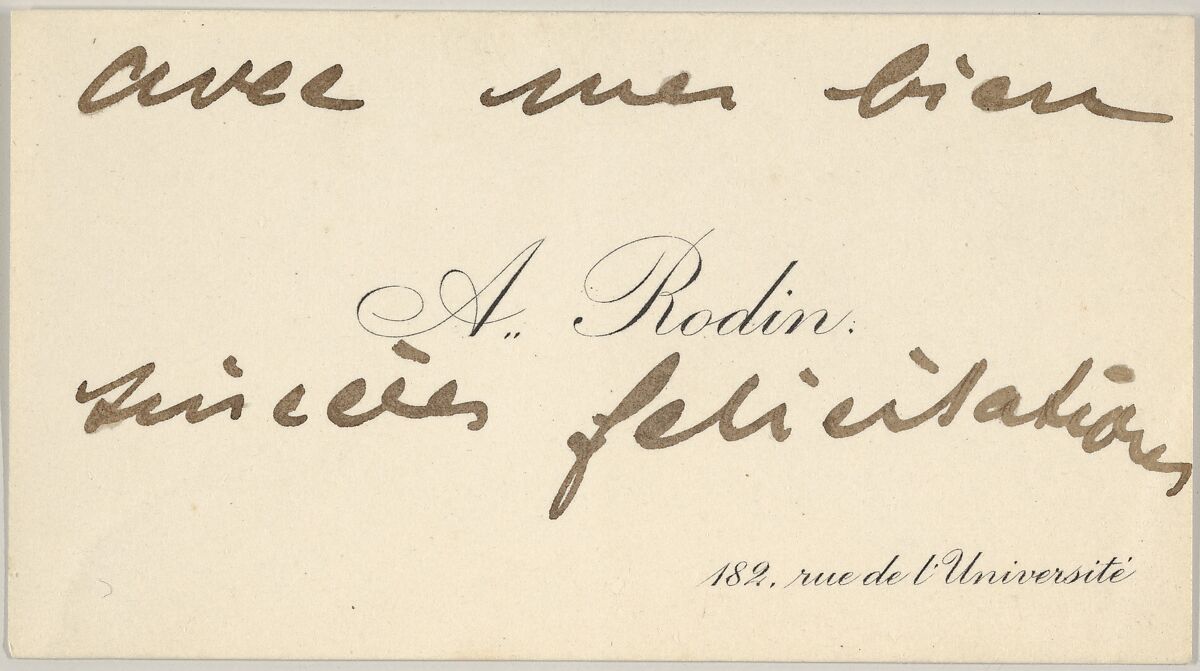 avec mes bien
A. Rodin.
sincères felicitations
182, rue de l'Université